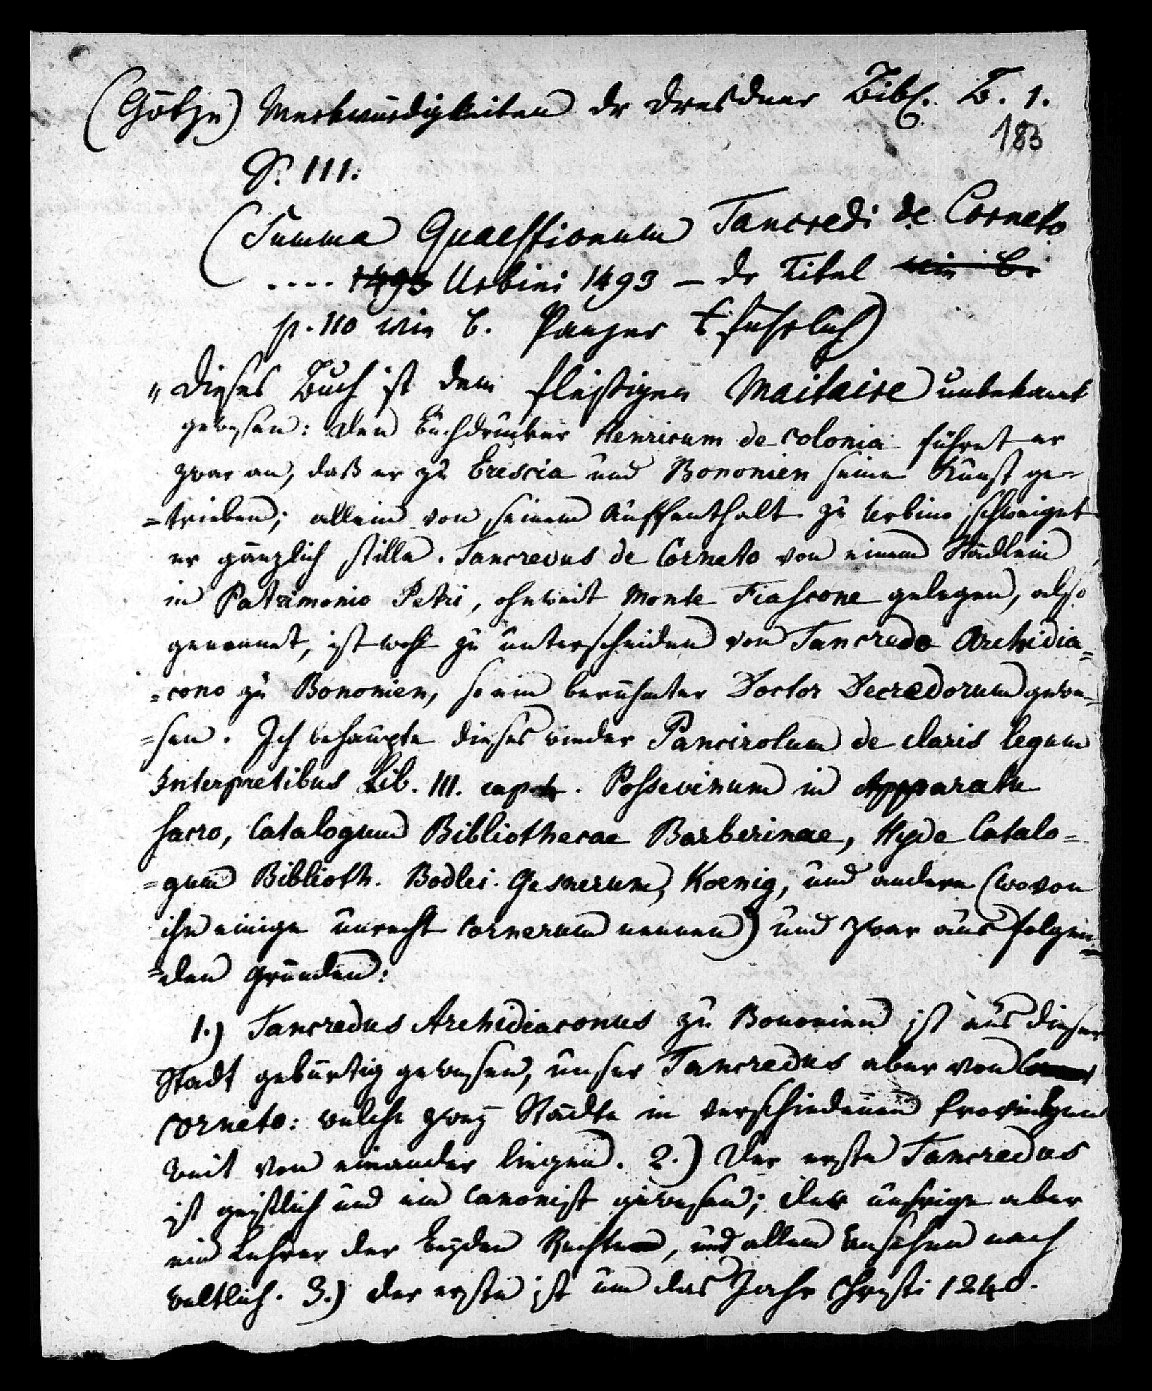 (Götze) Merkwürdigkeiten dr Dresdner Bibl. B. 1.
183
S. 111.
(Summa Quaestionum Tancredi de Corneto
.... 1493 Urbini 1493 – dr Titel wie b.
p. 110 wie b. Panzer
„Dieses Buch ist dem fleißigen Maitaire unbekannt
gewesen: Den Buchdrucker Henricum de Colonia führet er
zwar an, daß er zu Brescia und Bononien seine Kunst ge-
=trieben; allein von seinem Auffenthalt zu Urbino schweiget
er gänzlich stille. Tancredus de Corneto von einem Städlein
in Patrimonio Petri, ohnweit Monte Fiascone gelegen, also
genannt, ist wohl zu unterscheiden von Tancredo Archidia=
=cono zu Bononien, so ein berühmter Doctor Decredorum gewe=
=sen. Ich behaupte dieses wieder Pancirolum de claris legum
Interpretibus Lib. III. cap. Possevinum in Apparatu
sacro, Catalogum Bibliothecae Barberinae, Hyde Catalo=
=gum Biblioth. Bodlei. Gesnerum, Koenig, und andere (wovon
ihn einige unrecht Cornerum nennen) und zwar aus folgen=
=den Gründen:
1.) Tancredus Archidiaconus zu Bononien ist aus dieser
Stadt gebürtig gewesen, unser Tancredus aber von
Corneto: welche zwey Städte in verschiedenen Provintzen
weit von einander liegen. 2.) Der erste Tancredus
ist geistlich und ein Canonist gewesen; der unsrige aber
ein Lehrer der beyden Rechten, und allem Ansehen nach
weltlich. 3.) Der erste ist um das Jahr Christi 1240.